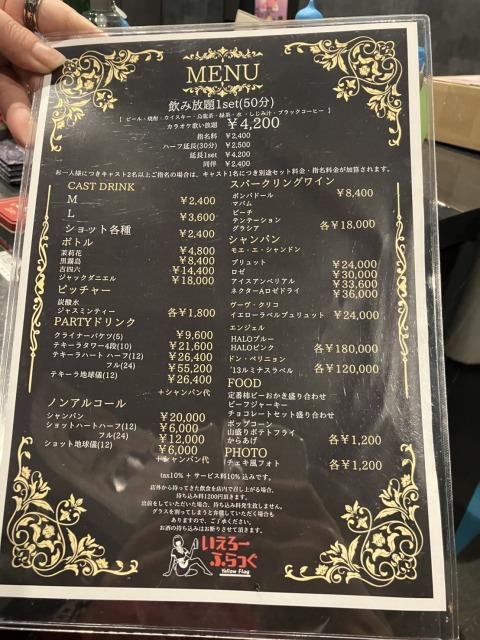 MENU
飲み放題1set(50分)
[ ビール・焼酎・ウイスキー・烏龍茶・緑茶・水・しじみ汁・ブラックコーヒー ]
カラオケ歌い放題 ￥4,200
指名料 ￥2,400
ハーフ延長(30分) ￥2,500
延長1set ￥4,200
同伴 ￥2,400
お一人様につきキャスト2名以上ご指名の場合は、キャスト1名につき別途セット料金・指名料金が加算されます。
CAST DRINK
M ￥2,400
L ￥3,600
ショット各種 ￥2,400
ボトル
茉莉花 ￥4,800
黒霧島 ￥8,400
吉四六 ￥14,400
ジャックダニエル ￥18,000
ピッチャー
炭酸水
ジャスミンティー 各￥1,800
PARTYドリンク
クライナーバケツ(5) ￥9,600
テキーラタワー4段(10) ￥21,600
テキーラハート ハーフ(12) ￥26,400
フル(24) ￥55,200
テキーラ地球儀(12) ￥26,400
+シャンパン代
ノンアルコール
シャンパン ￥20,000
ショットハートハーフ(12) ￥6,000
フル(24) ￥12,000
ショット地球儀(12) ￥6,000
+シャンパン代
スパークリングワイン
ポンパドール ￥8,400
マバム
ピーチ
テンテーション
グラシア 各￥18,000
シャンパン
モエ・エ・シャンドン
ブリュット ￥24,000
ロゼ ￥30,000
アイスアンペリアル ￥33,600
ネクターAロゼドライ ￥36,000
ヴーヴ・クリコ
イエローラベルブリュット ￥24,000
エンジェル
HALOブルー
HALOピンク 各￥180,000
ドン・ペリニョン
'13ルミナスラベル 各￥120,000
FOOD
定番柿ピーおかき盛り合わせ
ビーフジャーキー
チョコレートセット盛り合わせ
ポップコーン
山盛りポテトフライ
からあげ 各￥1,200
PHOTO
チェキ風フォト 各￥1,200
tax10% + サービス料10% 込みです。
店外から持ってきた飲食を店内で召し上がる場合、
持ち込み料1200円頂きます。
出前をしていただいた場合、持ち込み料発生致しません。
グラスを割ってしまうと弁償していただく場合も
ありますので、ご了承ください。
お酒の持ち込みはお断りさせて頂きます。
いえろー
ふらっぐ
Yellow Flag